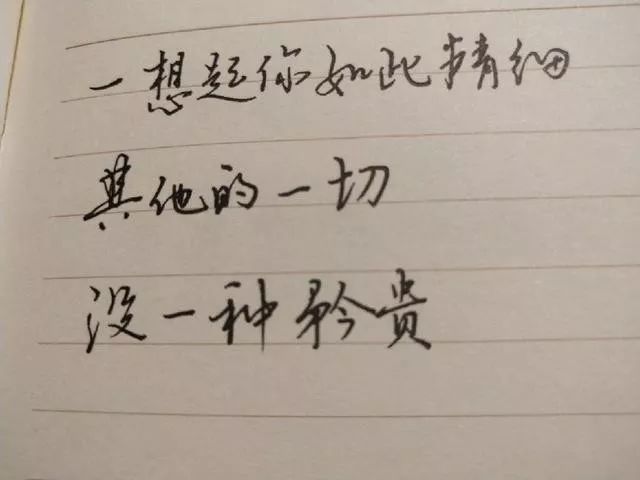 一想起你如此精细
其他的一切
没一种矜贵